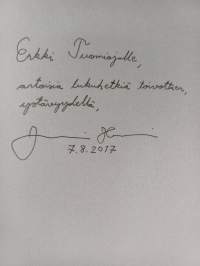 Erkki Tuomiojalle,
antoisia lukuhetkiä toivottaen,
ystävyydellä,
7.8.2017